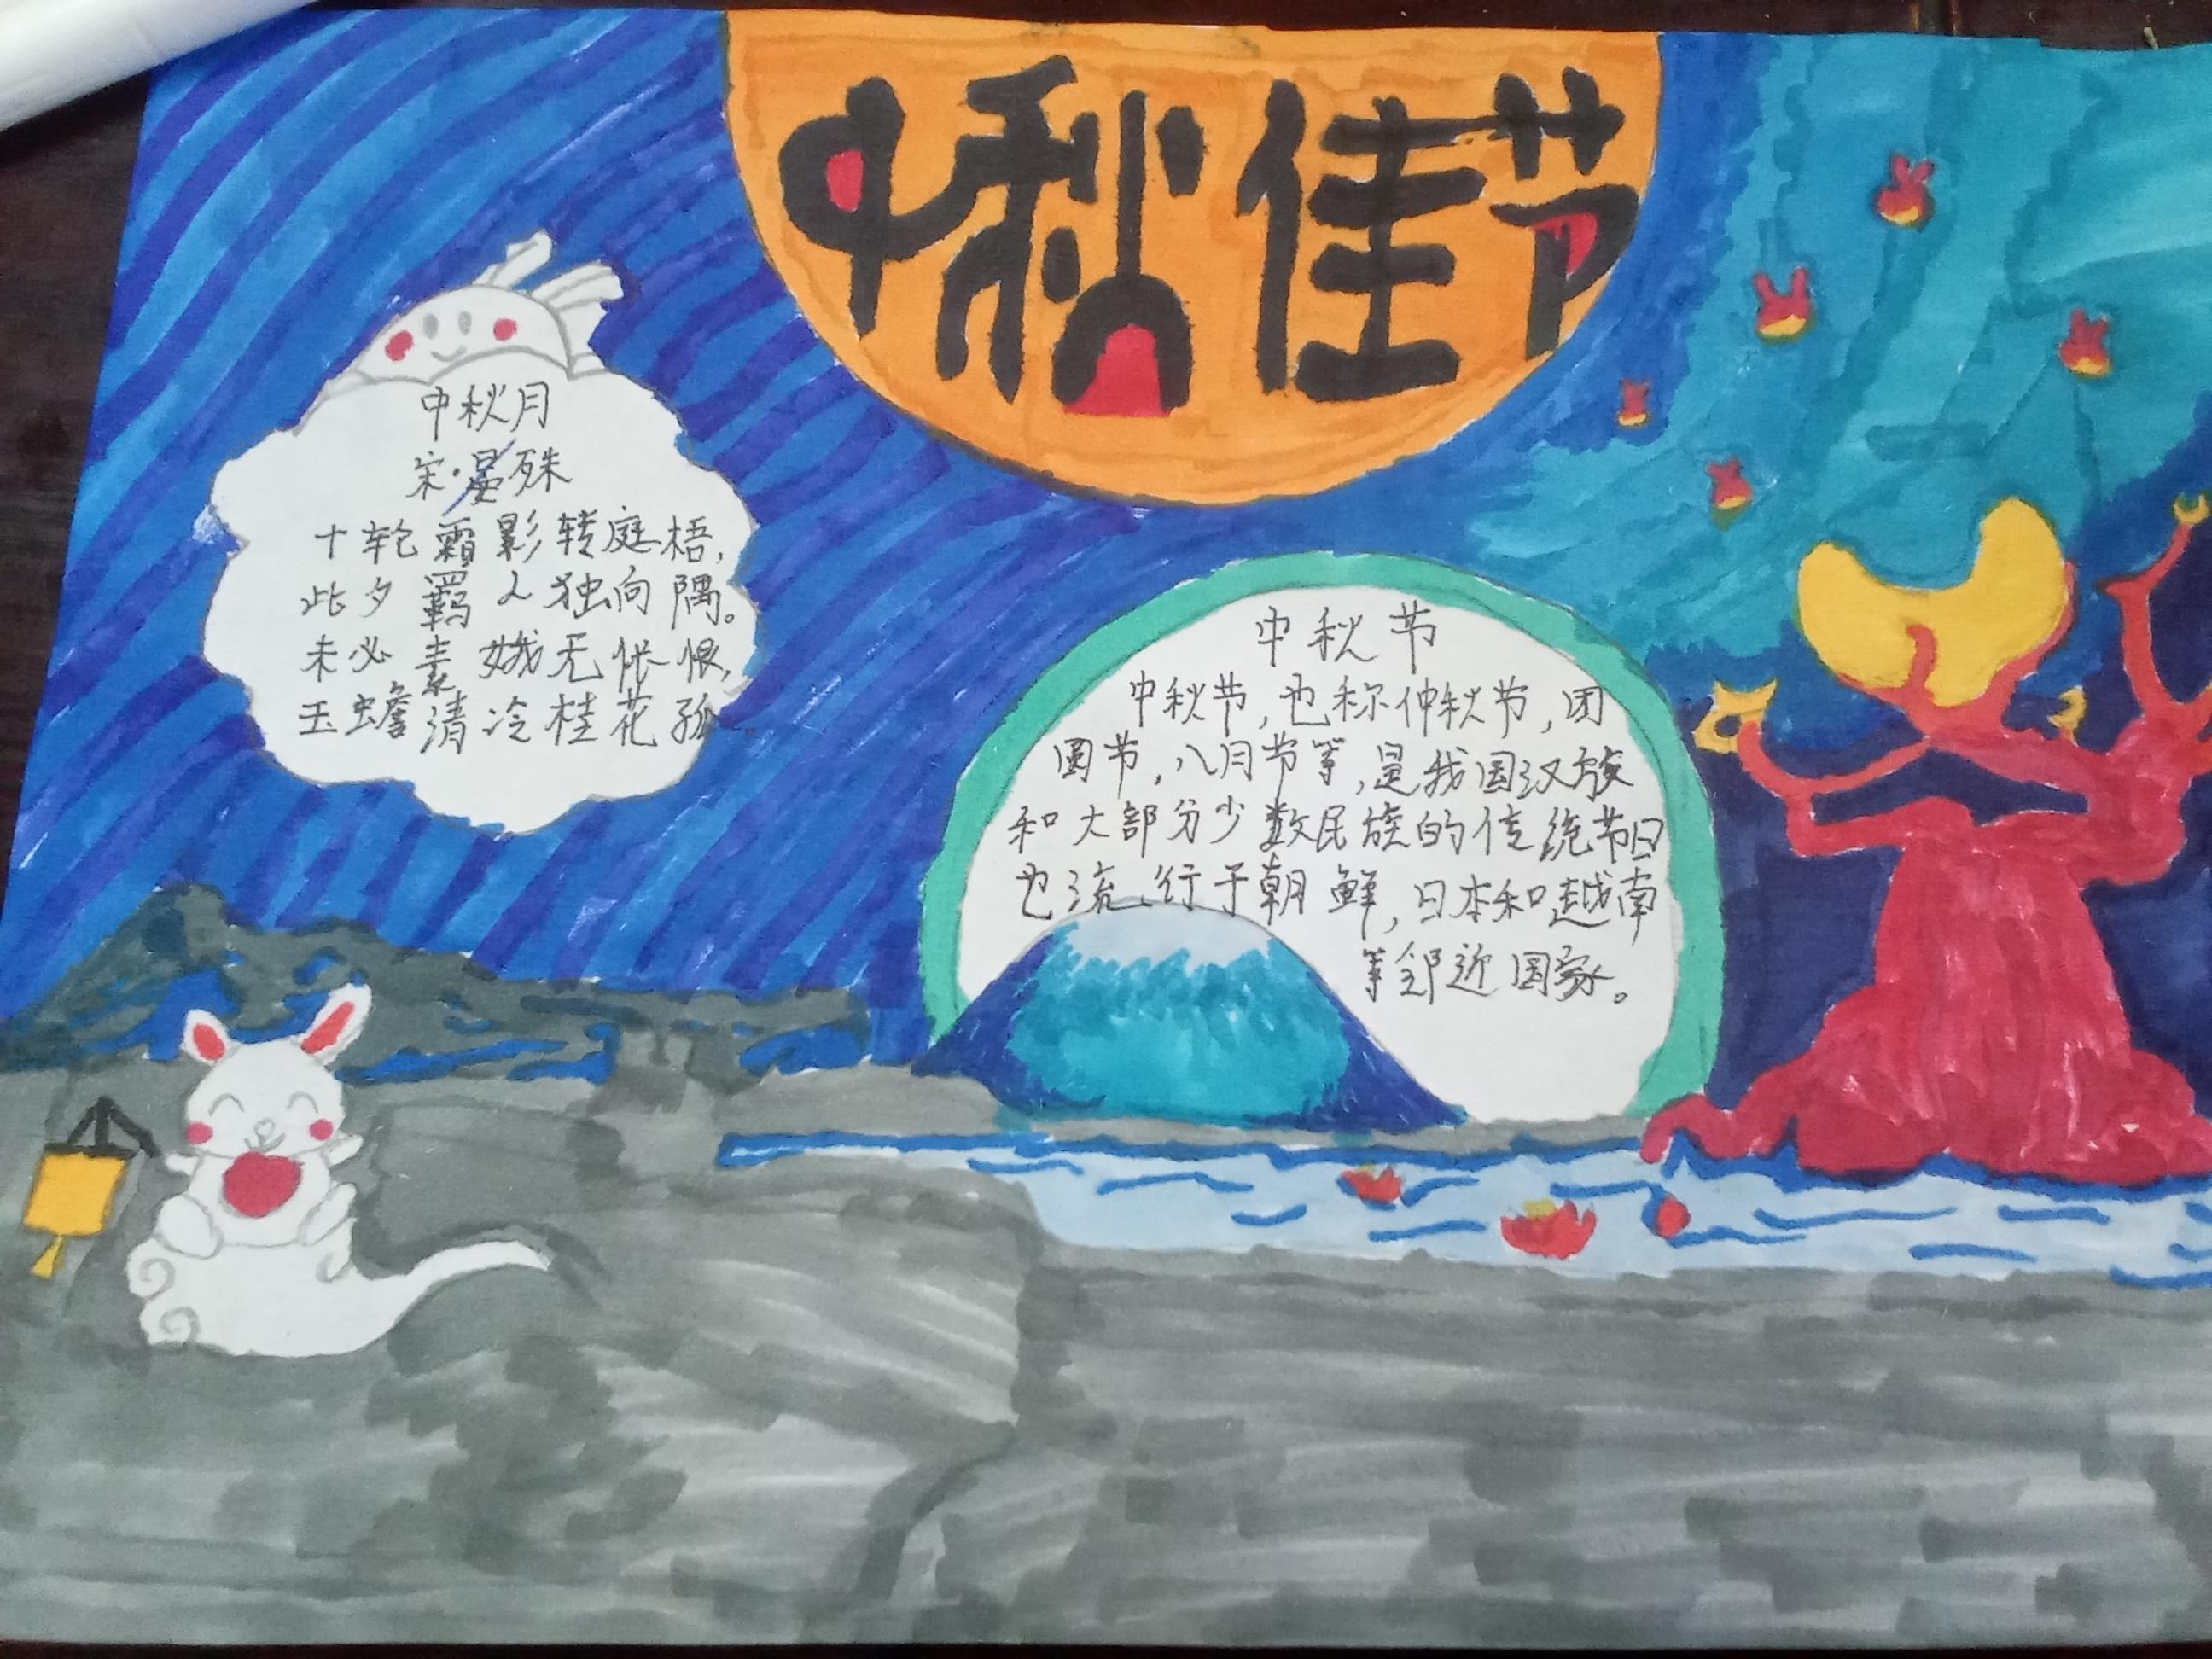 中秋佳节
中秋月
宋·晏殊
十轮霜影转庭梧,
此夕羁人独向隅。
未必素娥无怅恨,
玉蟾清冷桂花孤
中秋节
中秋节,也称仲秋节,团
圆节,八月节等,是我国汉族
和大部分少数民族的传统节日
也流行于朝鲜,日本和越南
等邻近国家。